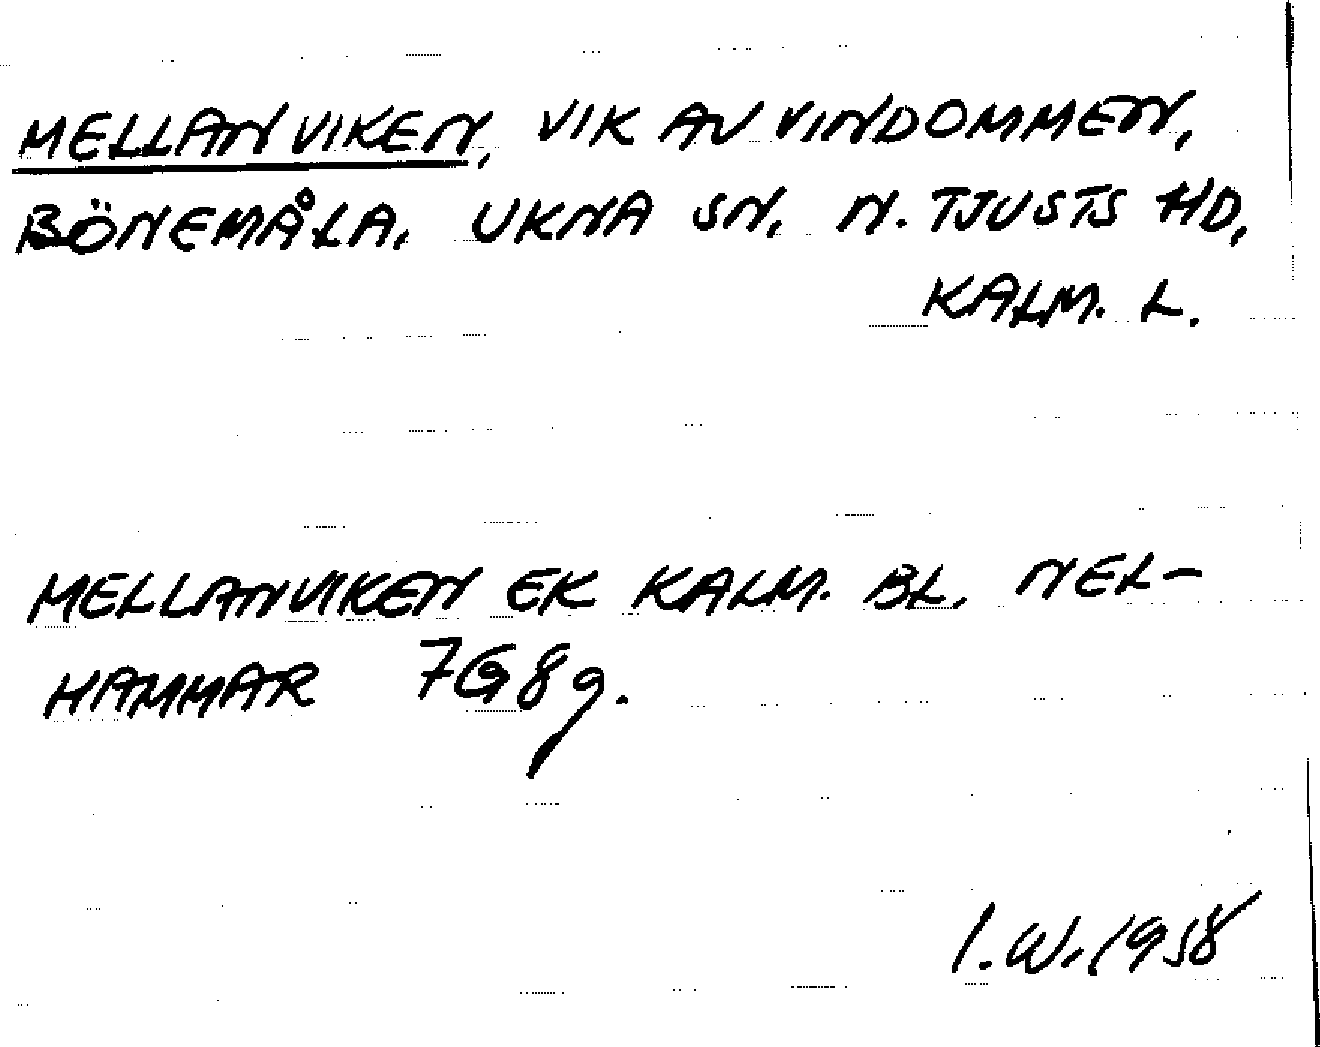 MELLANVIKEN, VIK AV VINDOMMEN,
BÖNEMÅLA, UKNA SN, N. TJUSTS HD,
KALM. L.
MELLANVIKEN EK KALM. BL. NEL-
HAMMAR 7G8g.
I.W. 1958